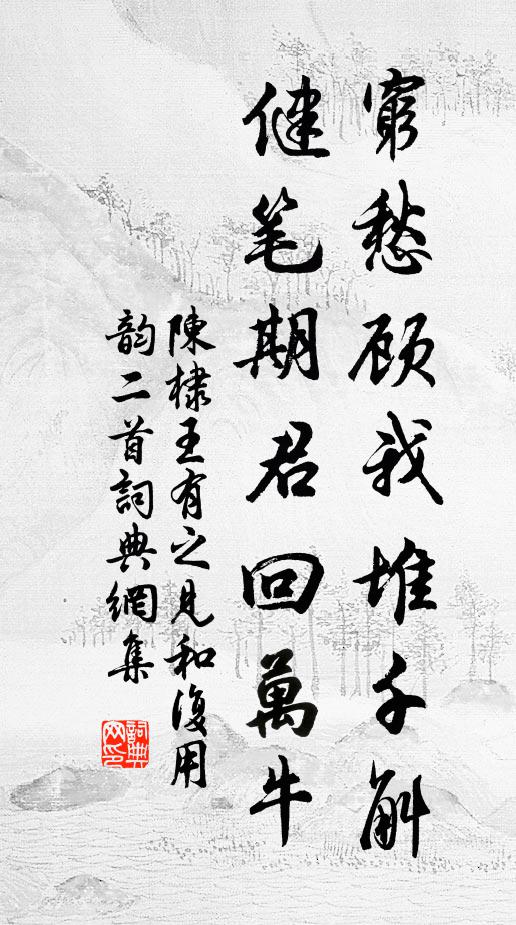 窮愁顾我堆千斛
健笔期君回萬牛
陳棣王有之見和復用
韵二首詞典網集
詞典网印